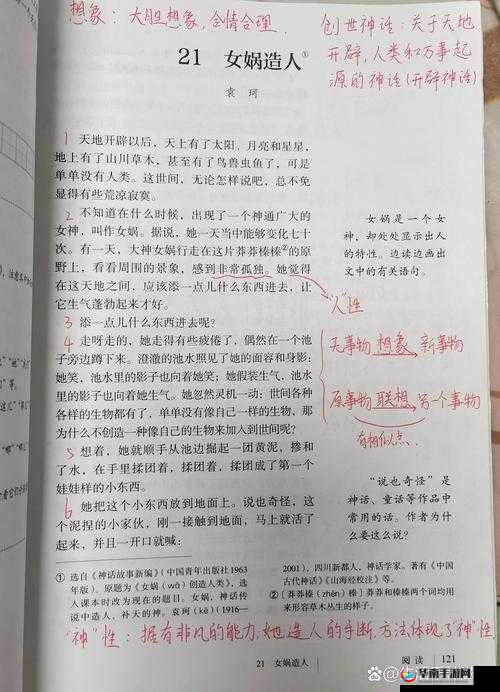 想象：大胆想象，合情合理
创世神话：关于天地
开辟，人类和万事起
源的神话（开辟神话）
21 女娲造人①
袁珂
1 天地开辟以后，天上有了太阳、月亮和星星，
地上有了山川草木，甚至有了鸟兽虫鱼了，可是
单单没有人类。这世间，无论怎样说吧，总不免
显得有些荒凉寂寞。
2 不知道在什么时候，出现了一个神通广大的
女神，叫作女娲。据说，她一天当中能够变化七十
次。有一天，大神女娲行走在这片莽莽榛榛②的原
野上，看看周围的景象，感到非常孤独。她觉得
在这天地之间，应该添一点儿什么东西进去，让
它生气蓬勃起来才好。
3 添一点儿什么东西进去呢？
4 走呀走的，她走得有些疲倦了，偶然在一个池
子旁边蹲下来。澄澈的池水照见了她的面容和身影：
她笑，池水里的影子也向着她笑；她假装生气，池水
里的影子也向着她生气。她忽然灵机一动：世间各种
各样的生物都有了，单单没有像自己一样的生物，那
为什么不创造一种像自己的生物来加入到世间呢？
5 想着，她就顺手从池边掘起一团黄泥，掺和
了水，在手里揉团着，揉团着，揉团成了第一个
娃娃样的小东西。
6 她把这个小东西放到地面上。说也奇怪，这
个泥捏的小家伙，刚一接触到地面，马上就活了
起来，并且一开口就喊：
女娲是一个女
神，却处处显示出人
的特性。边读边画出
文中的有关语句。
“人”性
无事物 想象 新事物
原事物 联想 另一个事物
有相似点
“说也奇怪”是
神话、童话等作品中
常用的话。作者为什
么要这么说？
① 选自《神话故事新编》（中国青年出版社1963
年版）。原题为《女娲（wā）创造人类》，选
入课本时改为现在的题目。女娲，神话传
说中造人、补天的神。袁珂（kē）（1916—
2001），四川新都人，神话学家。著有《中国
古代神话》《山海经校注》等。
②〔莽莽榛（zhēn）榛〕莽莽和榛榛两个词均用
来形容草木丛生的样子。
“神”性：据有非凡的能力，她造人的手断，方法体现了“神”性
21 女娲造人
阅读 121
华南手游网